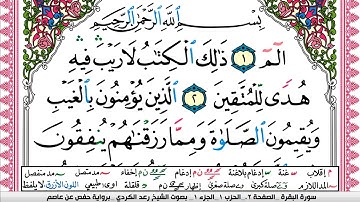 بِسْمِ اللَّهِ الرَّحْمَٰنِ الرَّحِيمِ
الٓمٓ ١ ذَٰلِكَ الْكِتَٰبُ لَا رَيْبَ فِيهِ
هُدًى لِّلْمُتَّقِينَ ٢ الَّذِينَ يُؤْمِنُونَ بِالْغَيْبِ
وَيُقِيمُونَ الصَّلَوٰةَ وَمِمَّا رَزَقْنَٰهُمْ يُنفِقُونَ
م إقلاب غنة إدغام بلاغنة إدغام ن م إخفاء مد متصل مد منفصل
المد اللازم صلة كبرى صلة صغرى إظهار قلقلة طبيعي اللون الأزرق لا يلفظ
سورة البقرة . الصفحة ٢ . الحزب ١ الجزء ١ . بصوت الشيخ رعد الكردي . برواية حفص عن عاصم